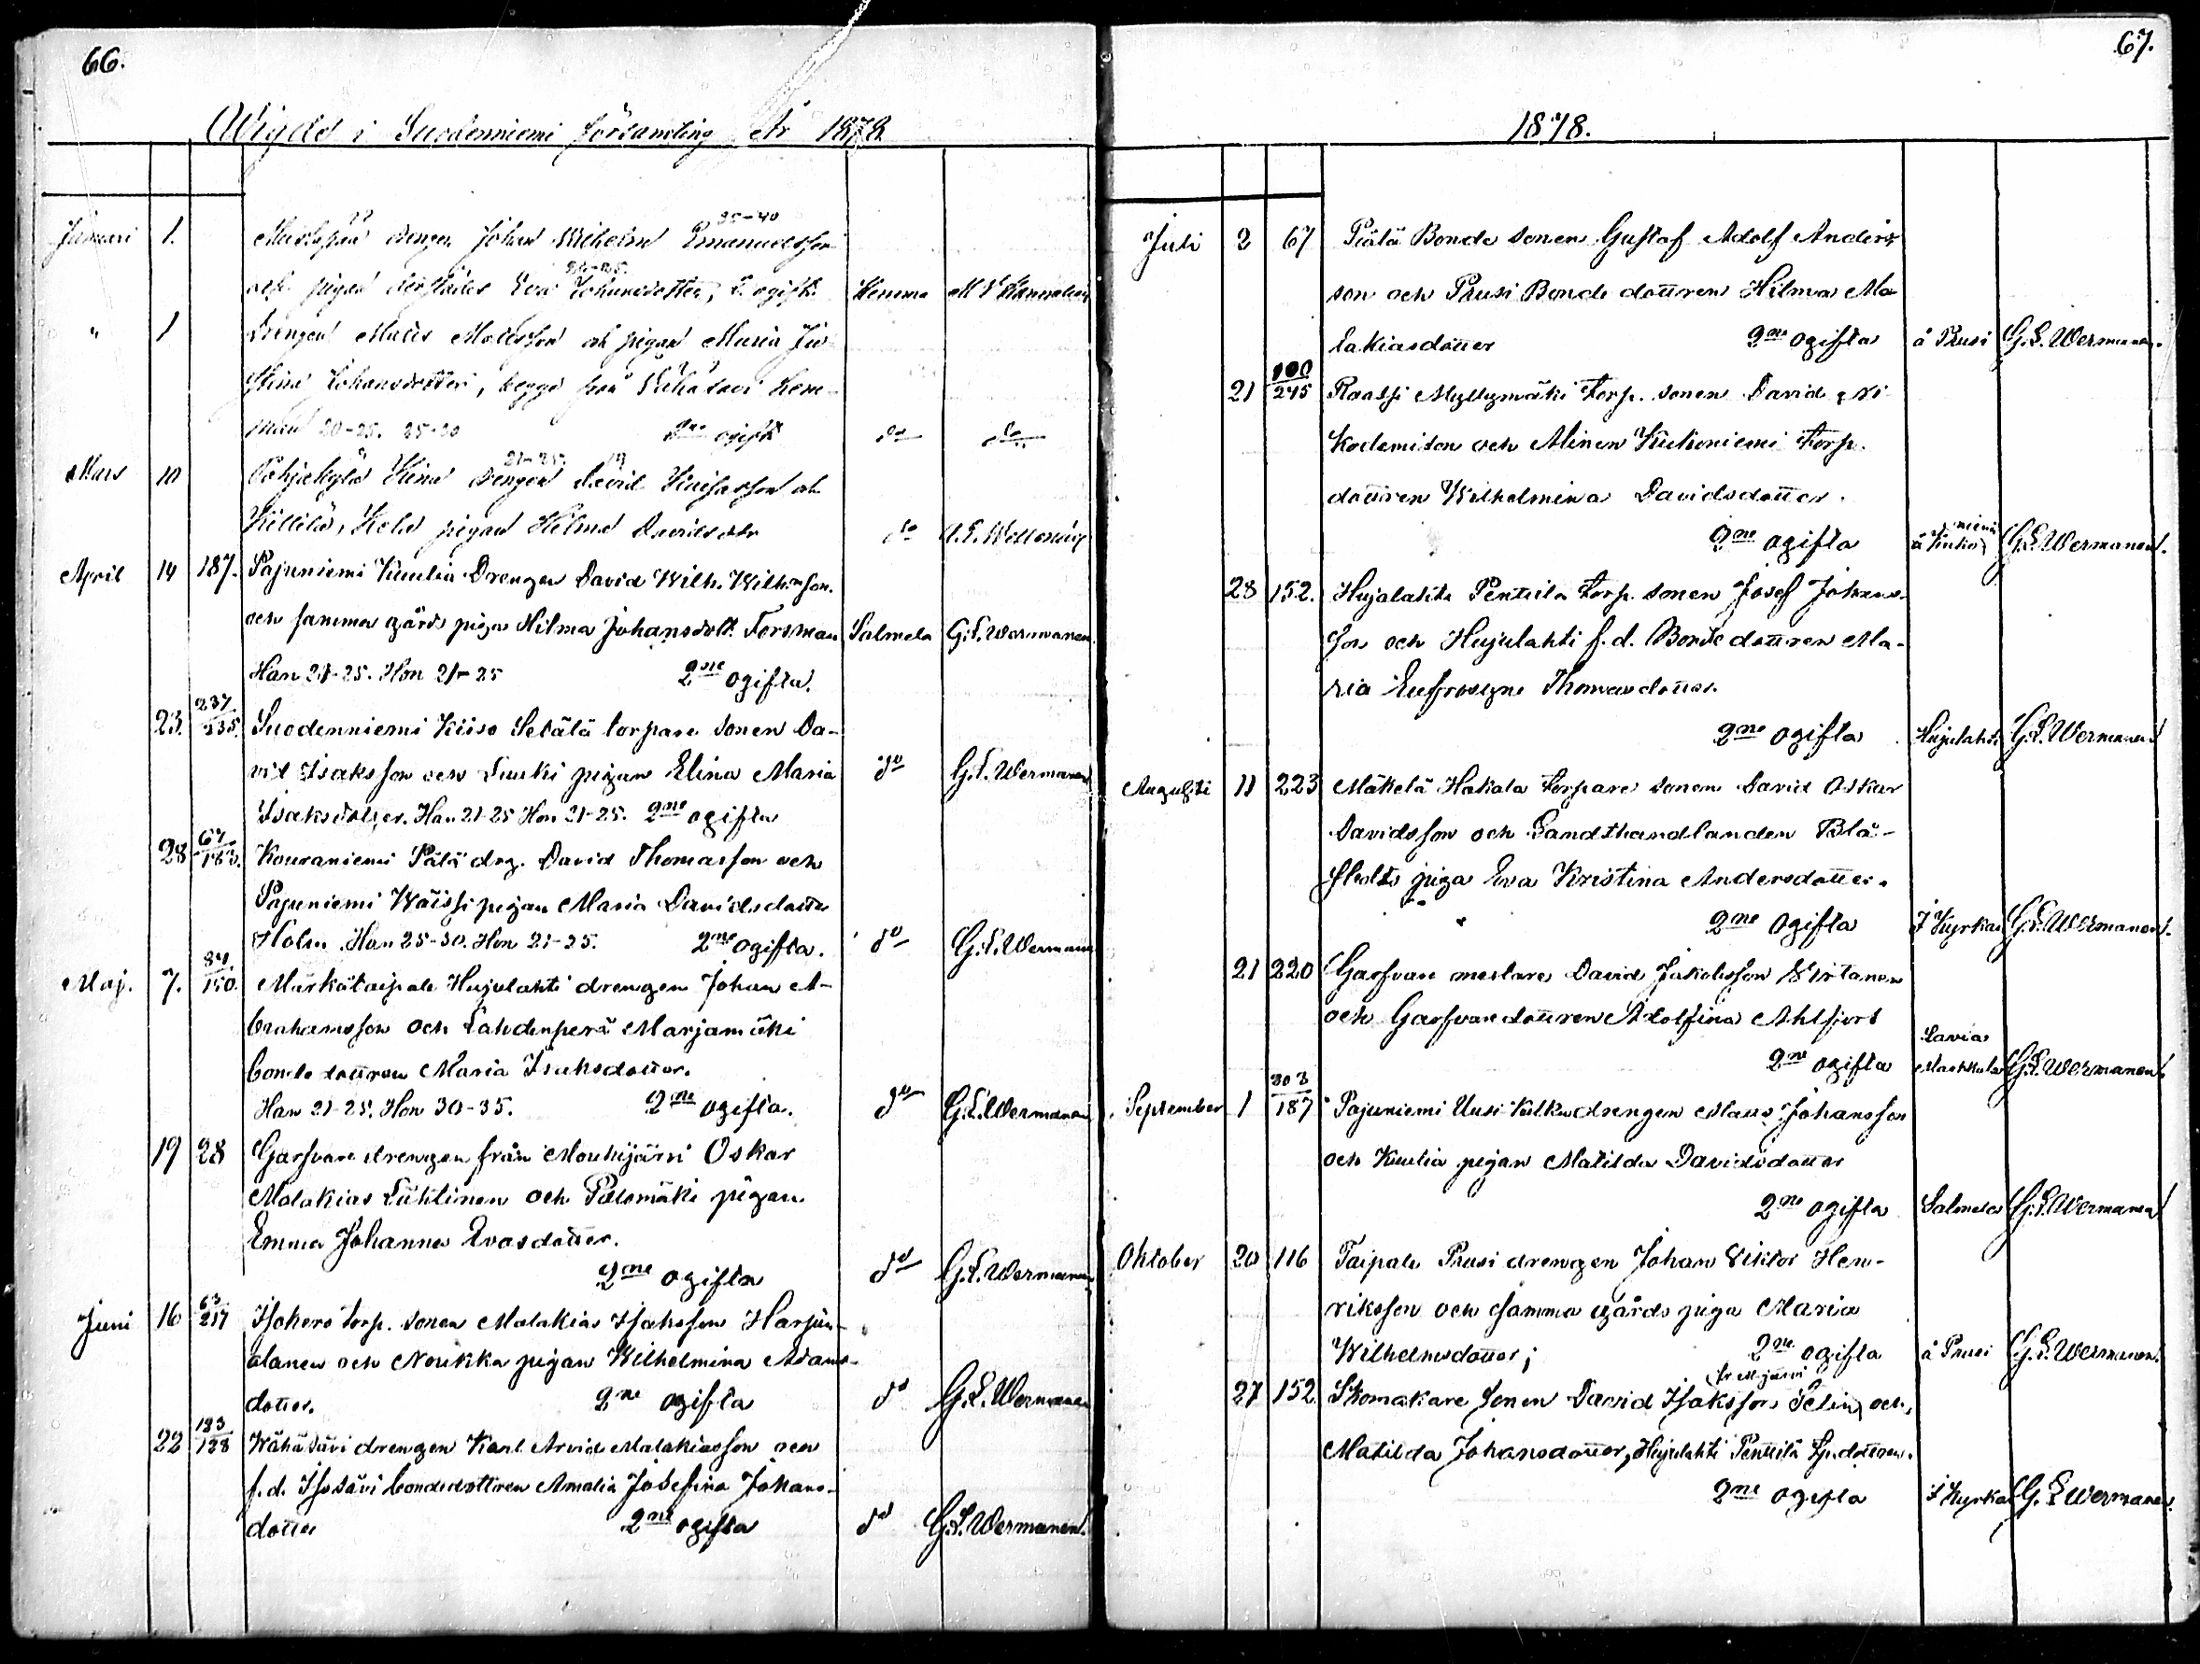 66.
Wigde i Suodenniemi församling År 1878
Januari 1. drengen Johan Wilhelm Emanuelsson 35-40
och pigan Eva Johansdotter, 2 ogift. Hemma
" 1 Drengen Matts Mattsson och pigan Maria
Stina Johansdotter, begge från Vähäsavi hem-
man 20-25. 25-30 2ne ogift do do
Mars 10 Pohjakylä drengen David och 21-25
pigan Hilma Davidsdtr do
April 14 187. Pajuniemi Kuulia Drengen David Wilh. Wilh:son.
och samma gårds piga Hilma Johansdott. Forsman Salmela G.L. Wermanen.
Han 21-25. Hon 21-25 2ne ogifta.
23. 237/235. Suodenniemi Kiiso Setälä torpare sonen Da-
vid Isaksson och Luuki pigan Elina Maria do G.L. Wermanen
Isaksdotter. Han 21-25 Hon 21-25. 2ne ogifta
28 67/183. Kouraniemi Pälä drg. David Thomasson och
Pajuniemi Wäissi pigan Maria Davidsdotter
Holm Han 25-30. Hon 21-25. 2ne ogifta. do G.L. Wermanen
Maj. 7. 84/150. Märkätaipale Hujulahti drengen Johan A-
brahamsson och Lahdenperä Marjamäki
bonde dottren Maria Isaksdotter.
Han 21-25. Hon 30-35. 2ne ogifta. do G.L. Wermanen
19 28 Garfvare drengen från Mouhijärvi Oskar
Malakias Lähtinen och Palomäki pigan
Emma Johanna Evasdotter.
2ne ogifta do G.L. Wermanen
Juni 16 63/217 Isohero torp. sonen Malakias Isaksson Harjun-
alanen och Noukka pigan Wilhelmina Adams-
dotter. 2ne ogifta do G.L. Wermanen
22 193/128 Wähäsävi drengen Karl Arvid Malakiasson och
f.d. Isosävi bondedottren Amalia Josefina Johans-
dotter 2ne ogifta do G.L. Wermanen.
67.
1878.
Juli 2 67 Pälä Bonde sonen Gustaf Adolf Anders
son och Prusi Bonde dottren Hilma Ma
lakiasdotter 2ne ogifta å Prusi G.L. Wermanen.
21 100/245 Raatsi Myllymäki torp. sonen David Ni
kodemison och Alinen Kiukoniemi torp.
dottren Wilhelmina Davidsdotter.
2ne ogifta å Kiukoniemi G.L. Wermanen.
28 152. Hujulahti Penttila torp. sonen Josef Johans-
son och Hujulahti f.d. Bonde dottren Ma-
ria Eufrosyne Thomasdotter.
2ne ogifta Hujulahti G.L. Wermanen
Augusti 11 223 Mäkelä Hakala torpare sonen David Oskar
Davidsson och Landthandlanden Blå-
fields piga Eva Kristina Andersdotter.
2ne ogifta I Kyrkan G.L. Wermanen.
21 220 Garfvare mestare David Jakobsson Wirtanen
och Garfvare dottren Adolfina Ahlfors
2ne ogifta Lavia G.L. Wermanen.
September 1 303/187 Pajuniemi Uusi Kulku drengen Johansson
och Kuulia pigan Matilda Davidsdotter
2ne ogifta Salmela G.L. Wermanen
Oktober 20 116 Taipale Prusi drengen Johan Viktor Hen-
riksson och samma gårds piga Maria
Wilhelmsdotter; 2ne ogifta å Prusi G.L. Wermanen.
27 152 Skomakare sonen David Isaksson Selin, och
Matilda Johansdotter, Hujulahti Penttilä tp. dottren.
2ne ogifta I Kyrkan G.L. Wermanen.